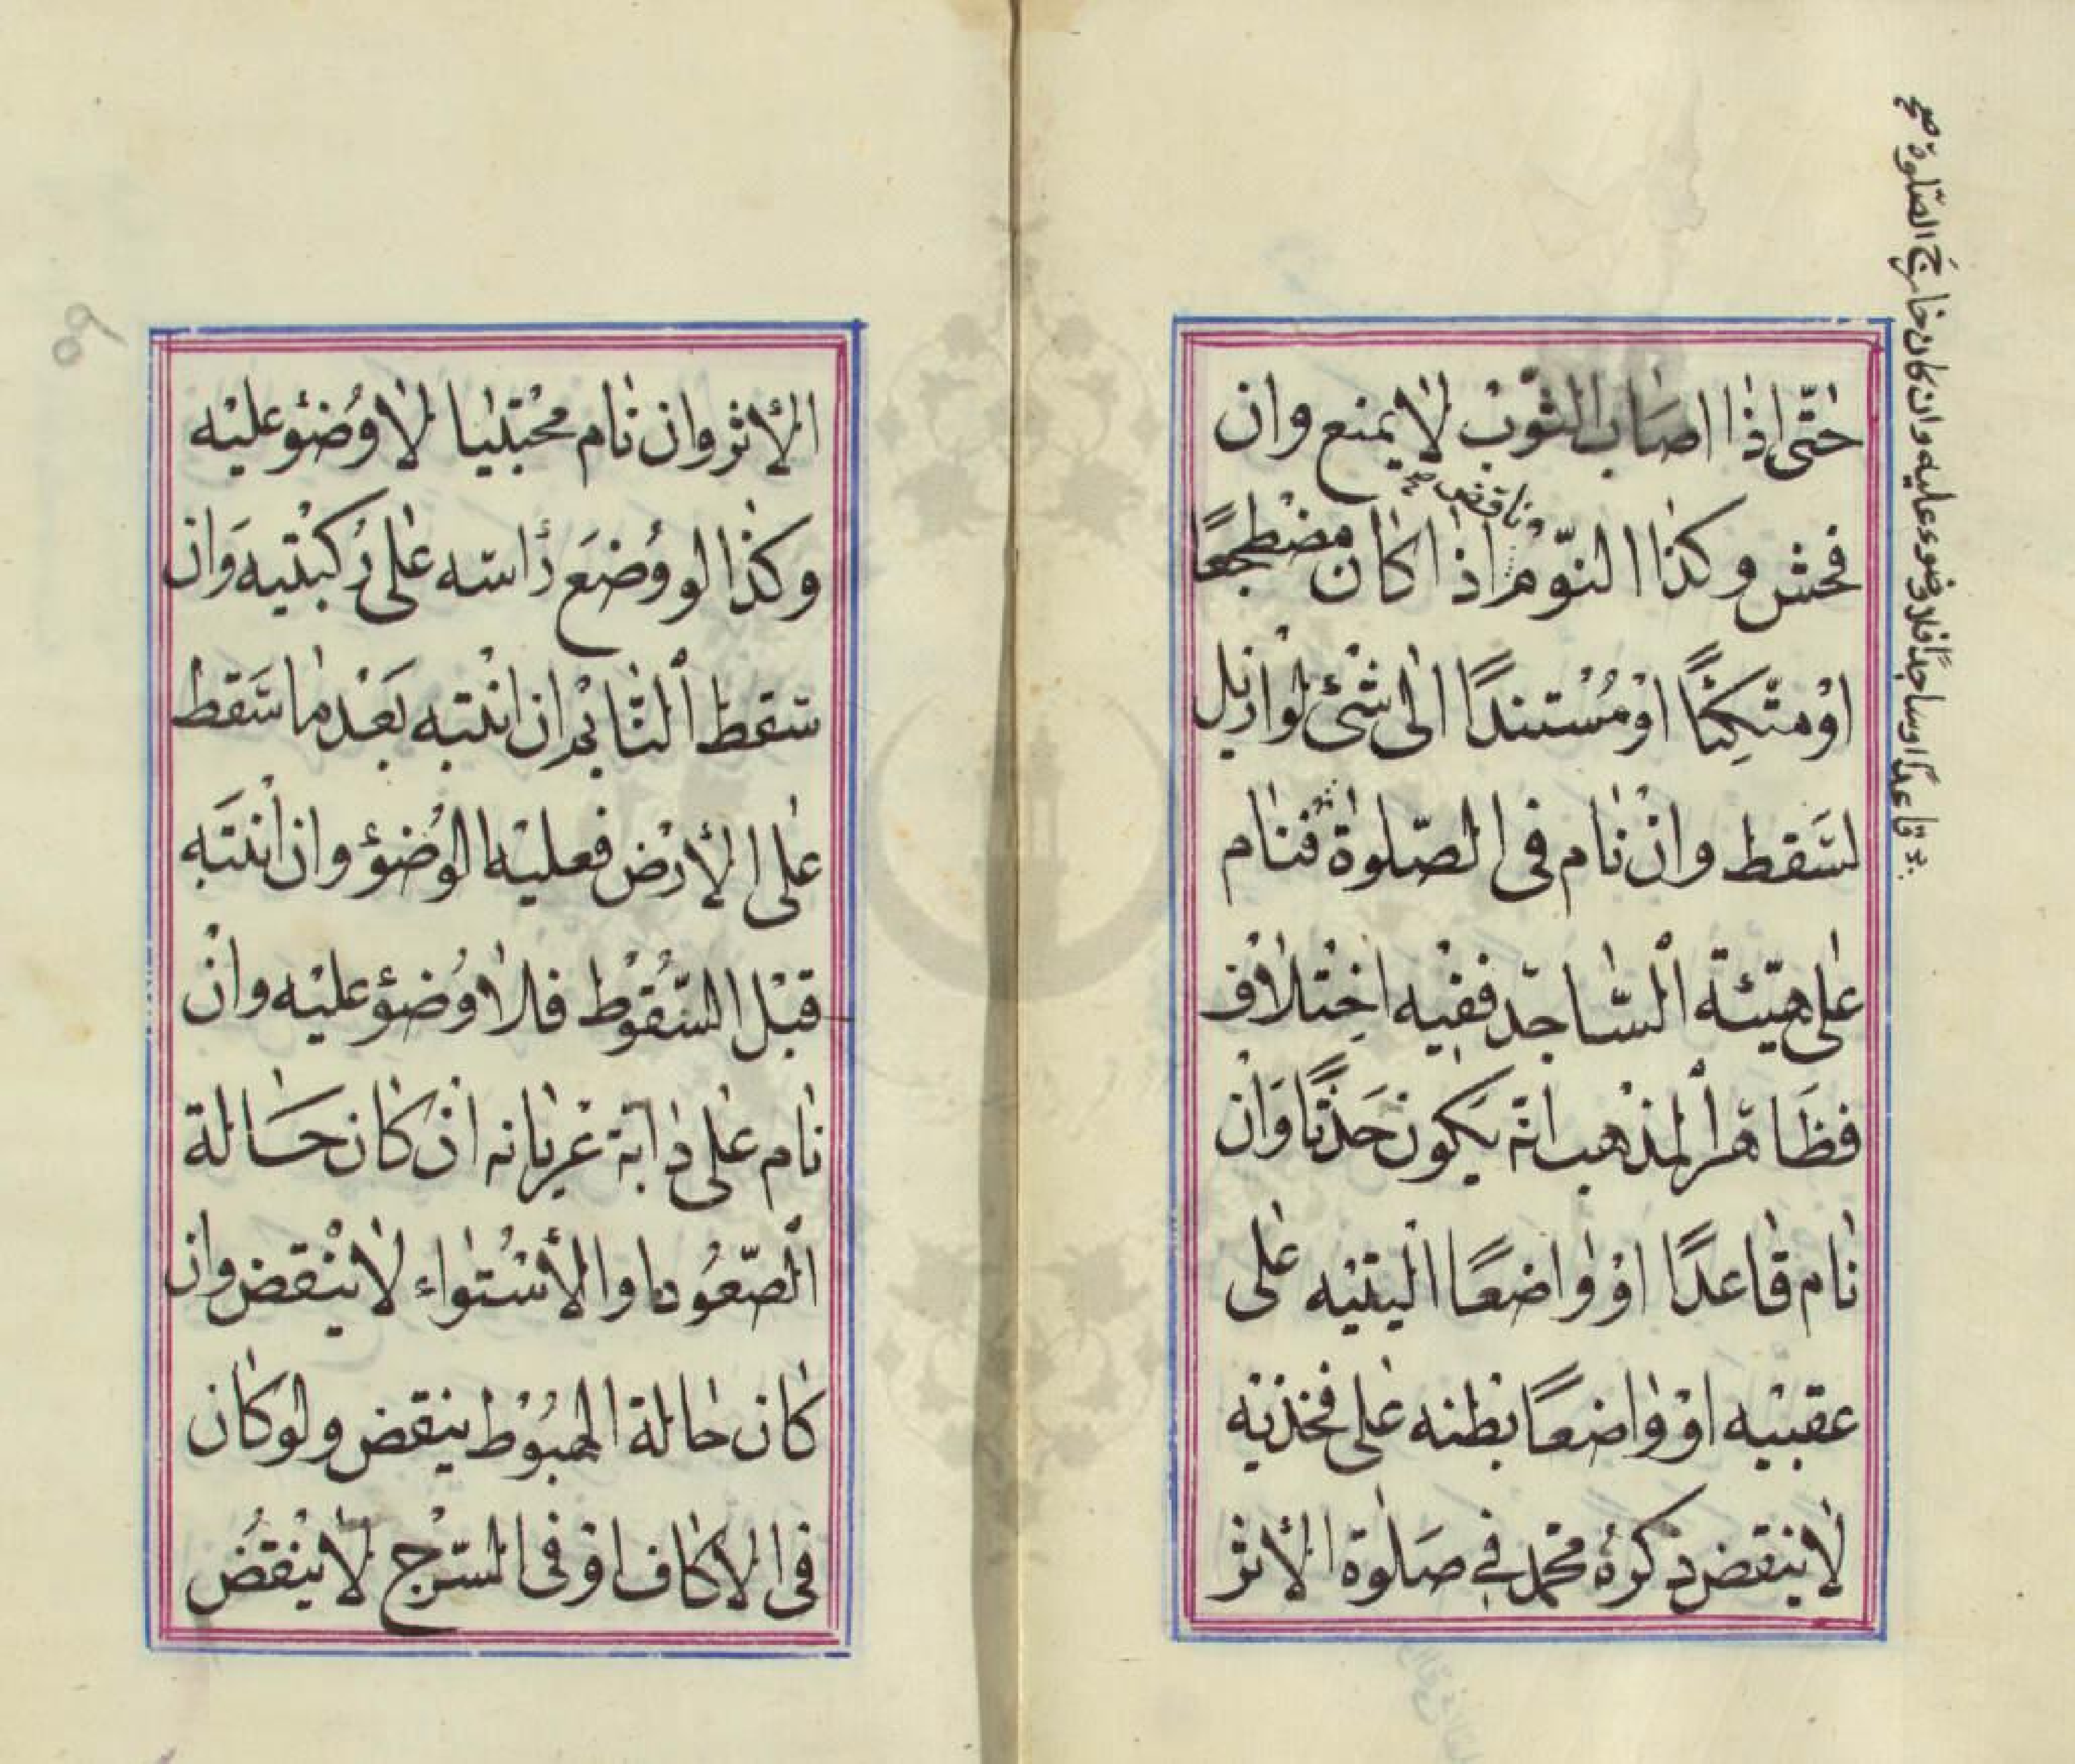 حتّى اذا اصاب الثوب لا يمنع وان
فحش وكذا النّوم اذا كان مضطجعًا
وناقض صح
او متّكئًا او مُستندًا الى شئ لو ازيل
لسَقط وان نام فى الصّلوة فنام
على هيئة السّاجد ففيه اختلاف
فظاهر المذهب انّه يكون حَدثًا وَان
نام قاعدًا او واضعًا اليتيه على
عقبيه او واضعًا بطنه على فخذيه
لا ينقض ذكرهُ محمّد فى صلوة الأثر
قاعدًا او ساجدًا فلا وضوء عليه وان كان خارج الصّلوة صح
الأثر وان نام محتبيا لا وُضوء عليه
وكذا لو وُضعَ رأسه على رُكبتيه وَان
سقط النّائم ان انتبه بَعْد ما سَقط
على الأرض فعليه الوُضوء وان انتبَه
قبْل السُّقوُط فلا وُضوء عليْه وان
نام على دابة عُريانه ان كان حَالة
الصّعُود او الأسْتواء لا ينْقض وان
كان حالة الهبُوط ينقض ولو كان
فى الاكاف او فى السّرْج لا ينْقُض